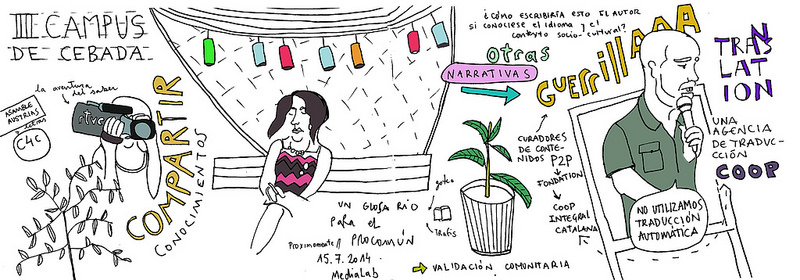 III CAMPUS
DE CEBADA
la aventura
del saber
rtve
ASAMBLEA
AUSTRIAS
C4C
COMPARTIR
CONOCIMIENTOS
UN GLOSARIO
PARA el
PROCOMÚN
PROXIMAMENTE//
15.7.2014
MEDIALAB
gatica
Trafis
¿CÓMO ESCRIBIRÍA ESTO EL AUTOR
SI CONOCIESE EL IDIOMA Y EL
CONTEXTO SOCIO-CULTURAL?
otras
NARRATIVAS
GUERRILLAAAA
CURADORES
DE CONTE-
NIDOS P2P
FONDATION
COOP
INTEGRAL
CATALANA
VALIDACIÓN COMUNITARIA
TRANS
LAT
ION
UNA
AGENCIA
DE TRADUC-
CIÓN
COOP
NO UTILIZAMOS
TRADUCCIÓN
AUTOMÁTICA